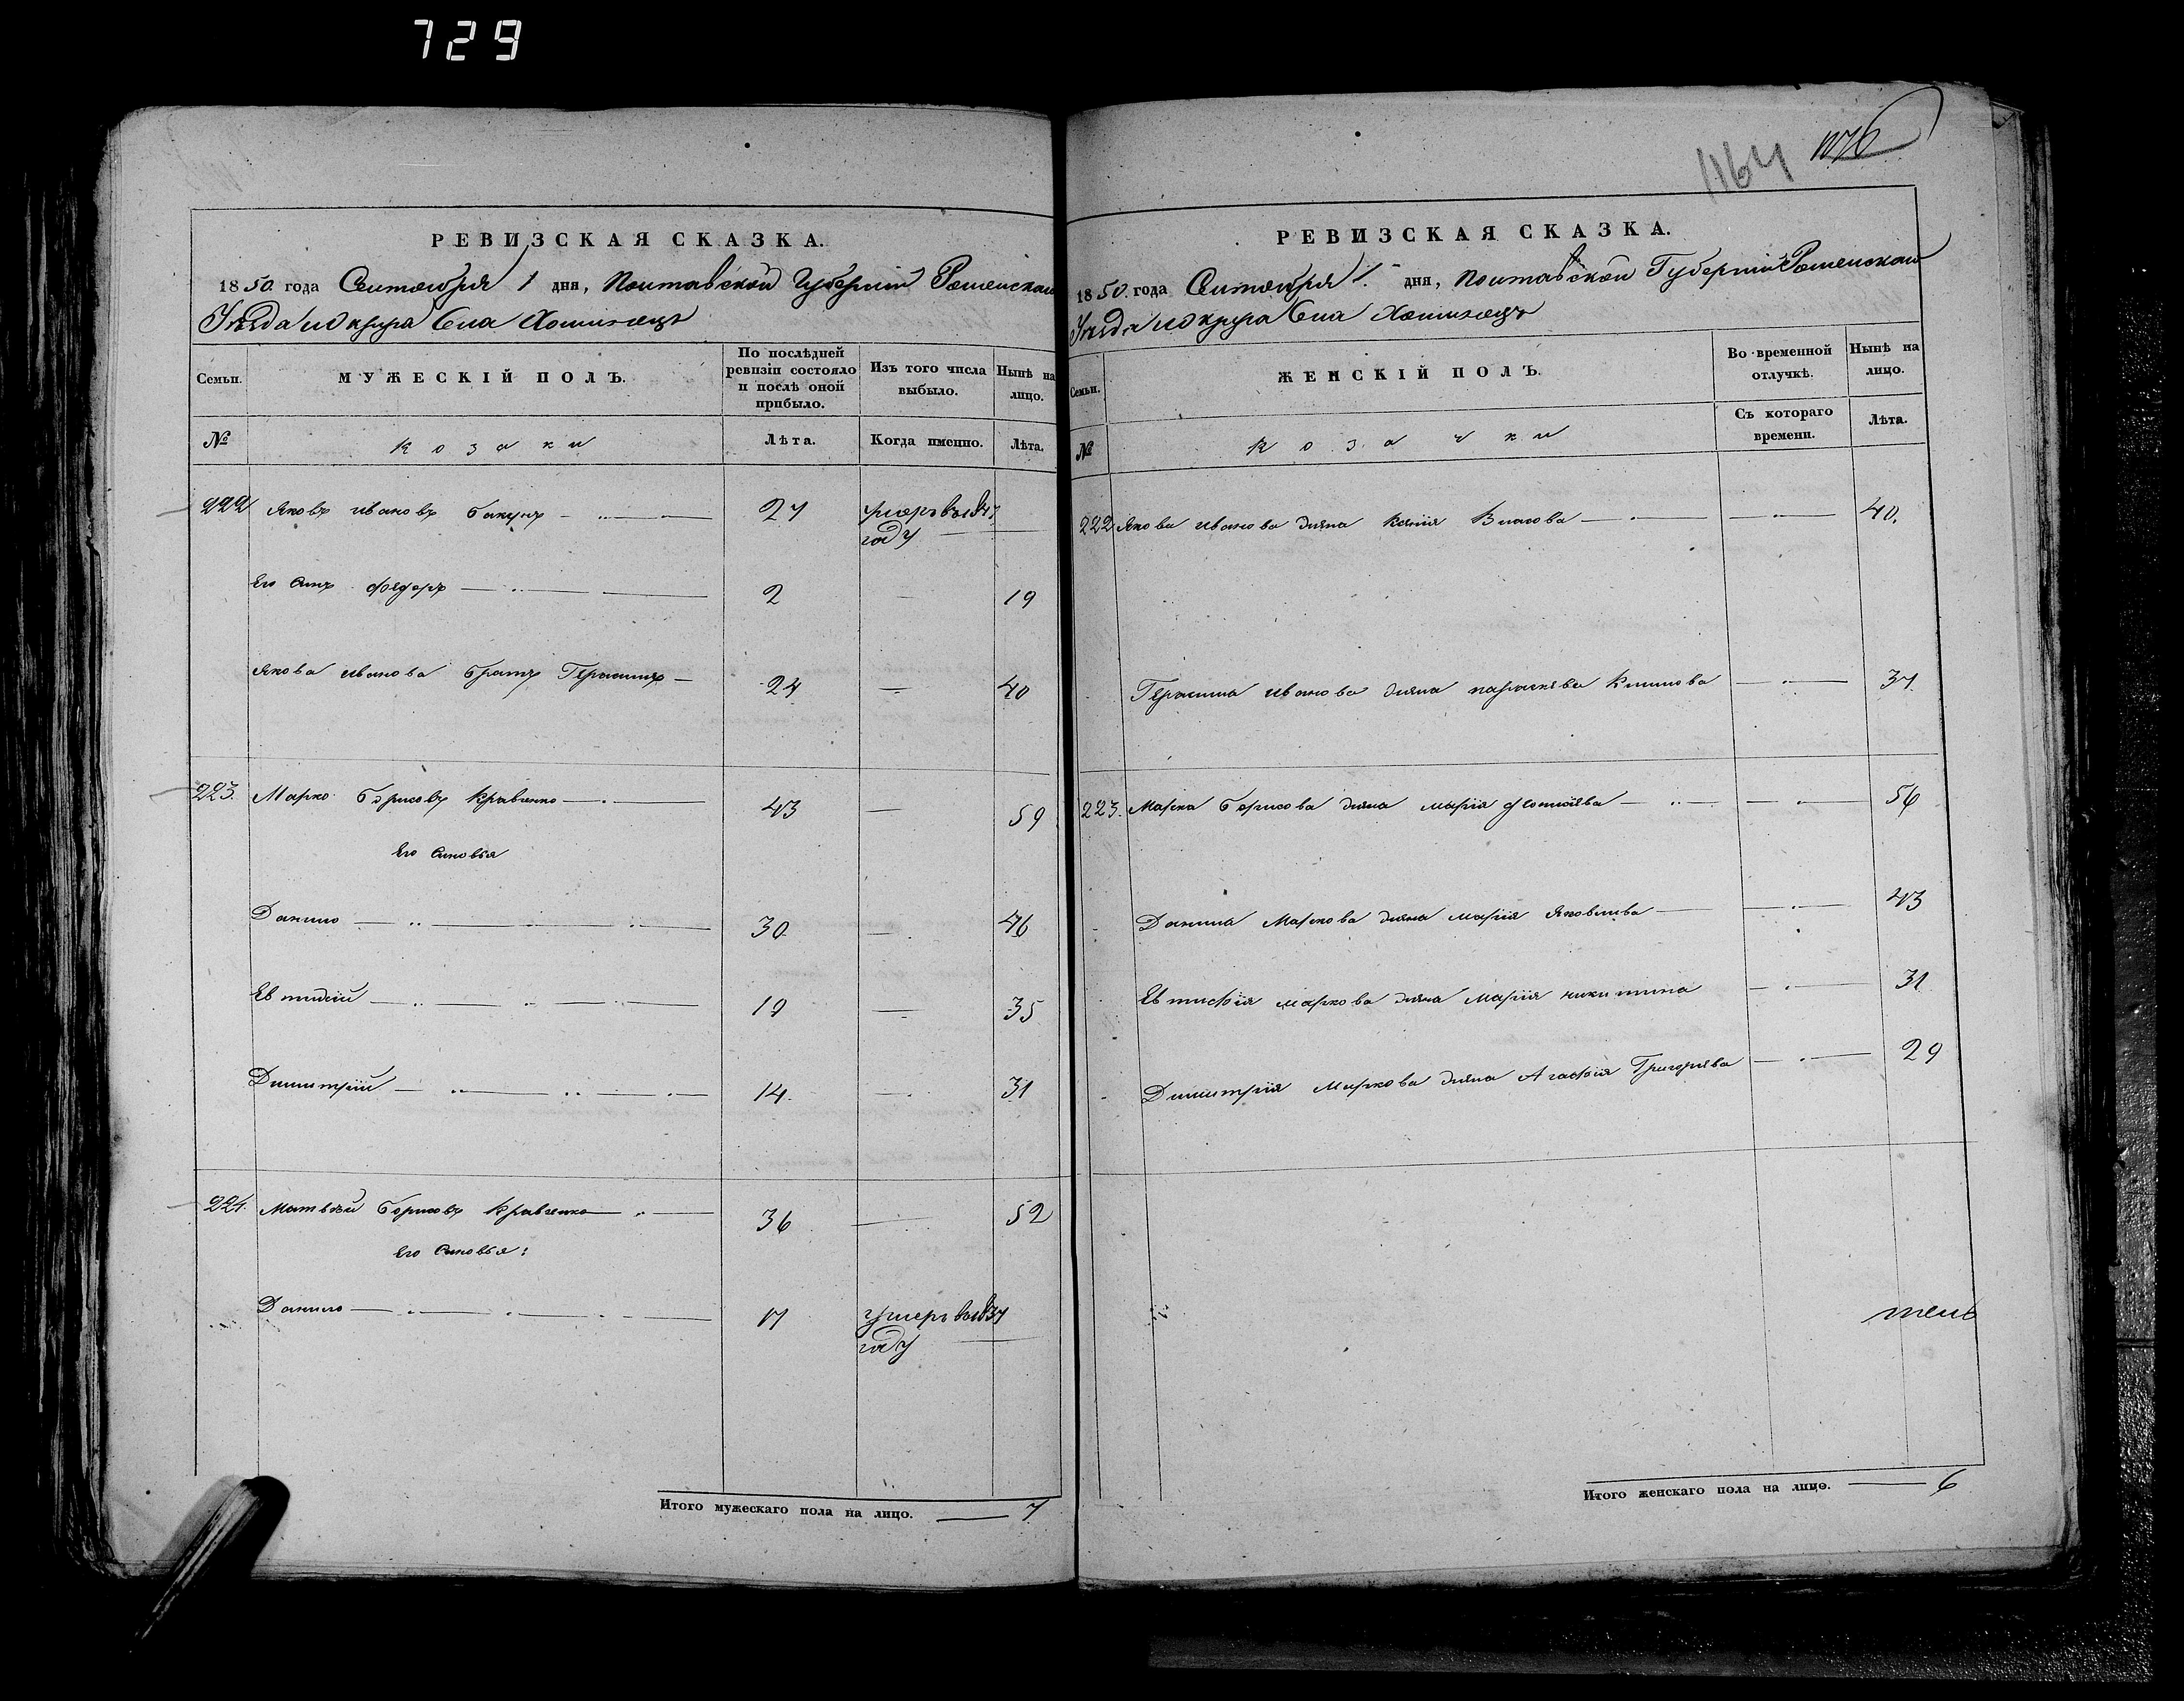 729
1164 1076
РЕВИЗСКАЯ СКАЗКА.
1850 года Сентября 1 дня, Полтавской Губерніи Роменскаго
Уѣзда и округа Села
Семьи.
МУЖЕСКІЙ ПОЛЪ.
По послѣдней ревизіи состояло и послѣ оной прибыло.
Изъ того числа выбыло.
Нынѣ на лицо.
№
козаки
Лѣта.
Когда именно.
Лѣта.
222 Яковъ Ивановъ Бакунъ 27 умеръ в
году
Его Сынъ Федоръ 2 19
Якова Иванова братъ Герасимъ 24 40
223. Марко Борисовъ Кравченко 43 59
Его Сыновья
Данило 30 46
Евтидій 19 35
Димитрій 14. 31
224. Матвѣй Борисовъ Кравченко 36 52
Его Сыновья:
Данило 17 умеръ в 1837
году
Итого мужескаго пола на лицо. 7
РЕВИЗСКАЯ СКАЗКА.
1850. года Сентября 1. дня, Полтавской Губерніи Роменскаго
Уѣзда и округа Села
Семьи.
ЖЕНСКІЙ ПОЛЪ.
Во временной отлучкѣ.
Нынѣ на лицо.
Съ котораго времени.
Лѣта.
№
козачки
222 Якова Иванова жена Ксенія Власова 40.
Герасима Иванова жена Параскева Климова 37.
223. Марка Борисова жена Марія 56
Данила Маркова жена Марія Яковлева 43
Маркова жена Марія Никитина 31
Димитрія Маркова жена Агафія Григорьева 29
Итого женскаго пола на лицо. 6